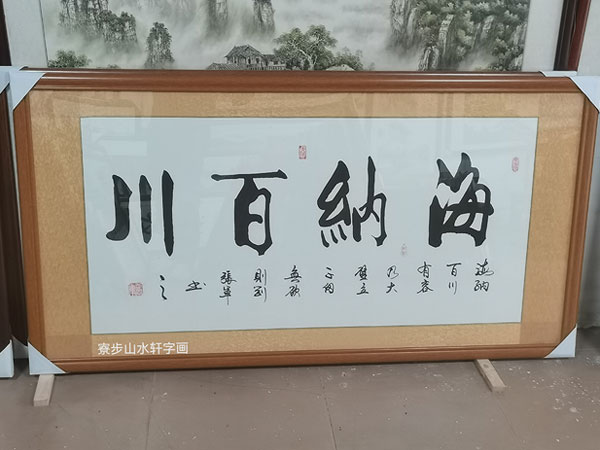 海納百川
海纳
百川
有容
乃大
壁立
千仞
無欲
則刚
書
寮步山水轩字画